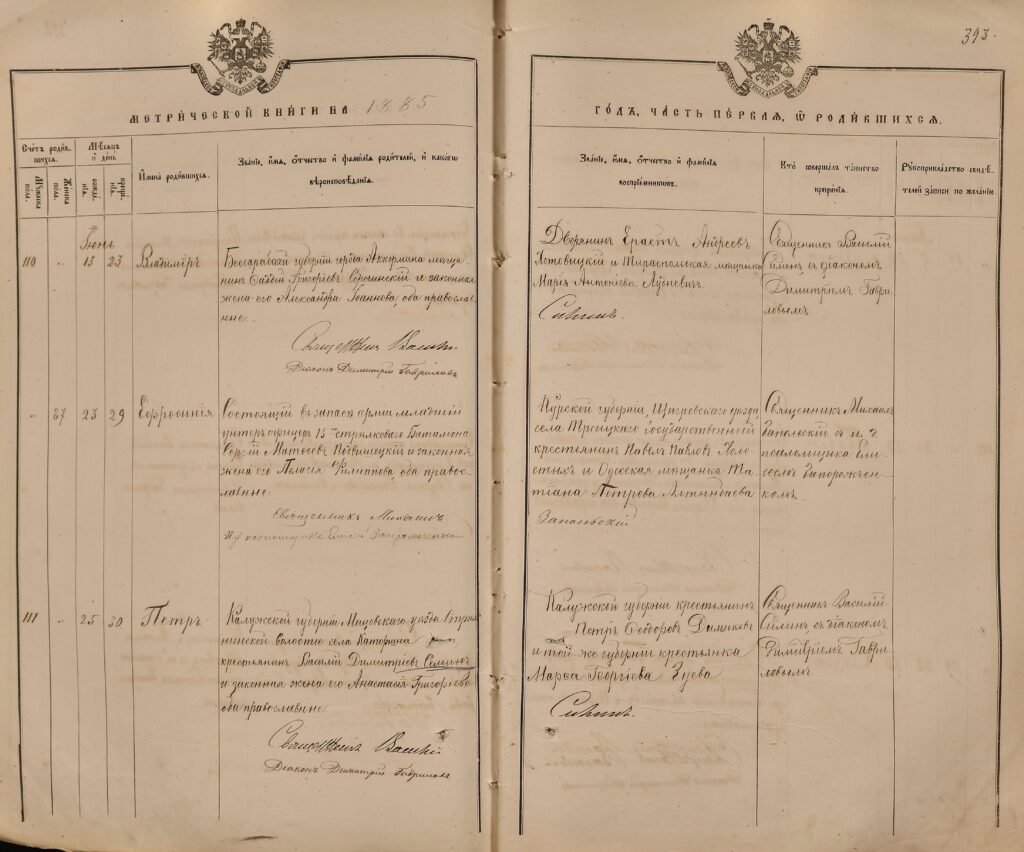 393.
МЕТРИ́ЧЕСКОЙ КНИ́ГИ НА 1885
ГО́ДЪ, ЧА́СТЬ ПЕ́РВАЯ, Ѿ РОДИ́ВШИХСЯ.
Сче́тъ роди́вшихся.
Мѣ́сяцъ и де́нь
Мужеска пола.
Женска пола.
рождені́я.
креще́нія.
Имена̀ роди́вшихся.
Зва́ніе, и́мя, о́тчество и фами́лія роди́телей, и како́гѡ
вѣроисповѣ́данія.
Зва́ніе, и́мя, о́тчество и фами́лія
воспріе́мниковъ.
Кто̀ соверша́лъ та́инство
креще́нія.
Рукоприкла́дство свидѣ́телей за́писи по жела́нію
Іюнь
110 " 13 23 Владиміръ
Бессарабской губерніи города Аккермана мѣща-
нинъ Савва Григорьевъ и законная
жена его Александра Іоаннова, оба православ-
ные.
Священникъ Василій
Діаконъ Димитрій Гавриловъ
Дворянинъ Ерастъ Андреевъ
и Тираспольская мѣщанка
Марія Антоніева
Силинъ.
Священникъ Василій
Силинъ съ діакономъ
Димитріемъ Гаври-
ловымъ
" 87 23 29 Ефросинія
Состоящій въ запасѣ арміи младшій
унтеръ офицеръ 15 стрѣлковаго баталіона
Сергій Матѳеевъ и законная
жена его Пелагія Филиппова, оба православ-
лавные.
Священникъ Михаилъ
И д псаломщика Елисей Запорожченко
Курской губерніи, Щигровскаго уѣзда
села Троицкаго государственный
крестьянинъ Павелъ Павловъ Холо-
стыхъ и Одесская мѣщанка Та-
тіана Петрова Алтынбаева
Запольскій
Священникъ Михаилъ
Запольскій съ и. д.
псаломщика Ели-
сеемъ Запорожчен-
комъ
111 " 25 30 Петръ
Калужской губерніи Мещовскаго уѣзда
волости села
крестьянинъ Василій Димитріевъ Семинъ
и законная жена его Анастасія Григорьева
оба православные
Священникъ Василій
Діаконъ Димитрій Гавриловъ
Калужской губерніи крестьянинъ
Петръ Ѳеодоровъ
и той-же губерніи крестьянка
Марѳа Георгіева Зуева
Силинъ.
Священникъ Василій
Силинъ съ діакономъ
Димитріемъ Гаври-
ловымъ